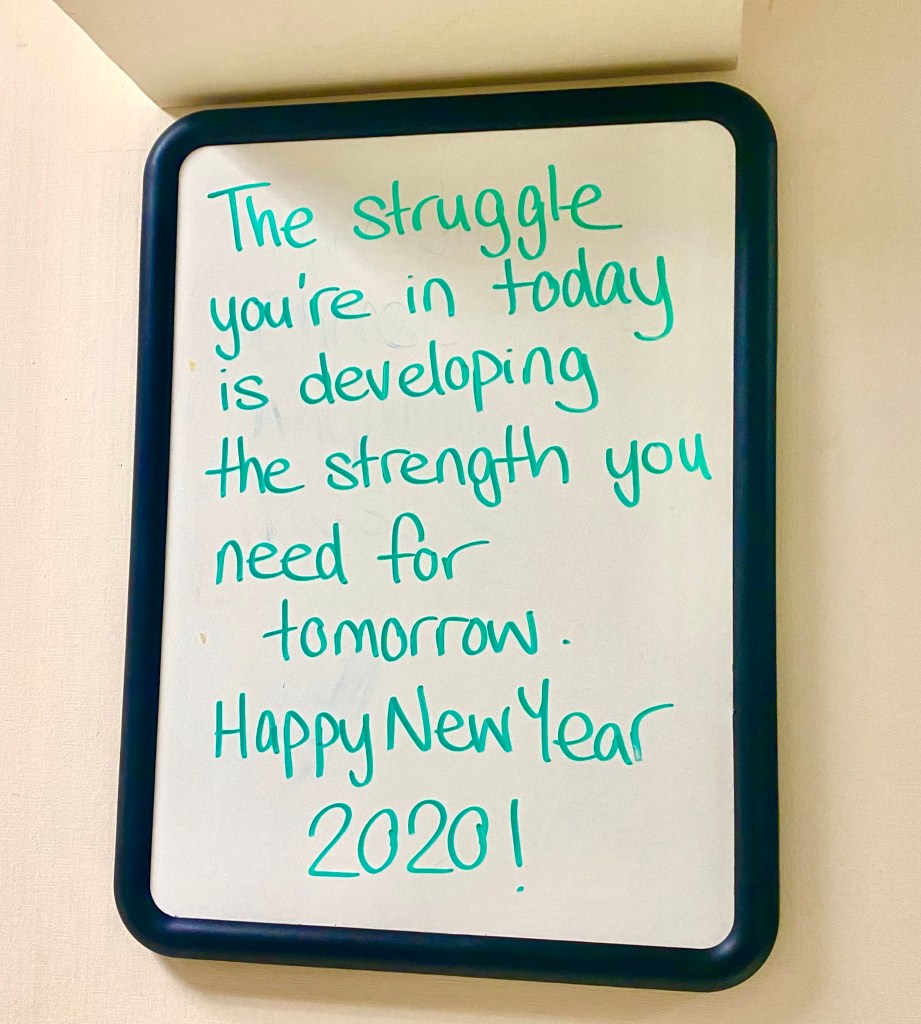 The struggle
you're in today
is developing
the strength you
need for
tomorrow.
Happy New Year
2020!